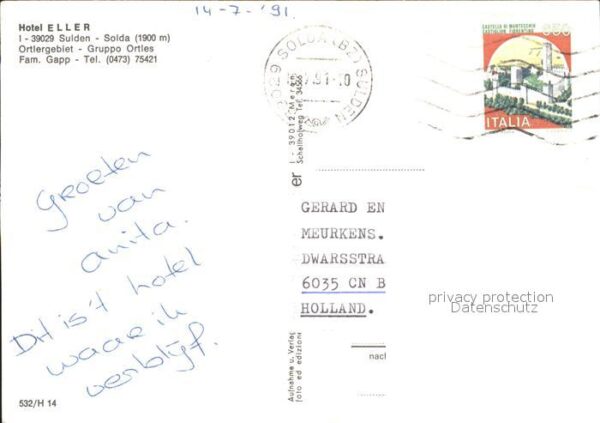 14-7-'91.
Hotel ELLER
I - 39029 Sulden - Solda (1900 m)
Ortlergebiet - Gruppo Ortles
Fam. Gapp - Tel. (0473) 75421
39029 SOLDA (BZ) SULDEN
7.91-10
CASTELLO DI MONTECCHIO
CASTIGLION FIORENTINO
ITALIA
I - 39012 Meran
Schallhofweg Tel. 34566
er
Groeten
van
anita.
Dit is't hotel
waar ik
verblijf.
GERARD EN
MEURKENS.
DWARSSTRA
6035 CN B
HOLLAND.
privacy protection
Datenschutz
Aufnahme u. Verlag
foto ed edizione
nach
532/H 14